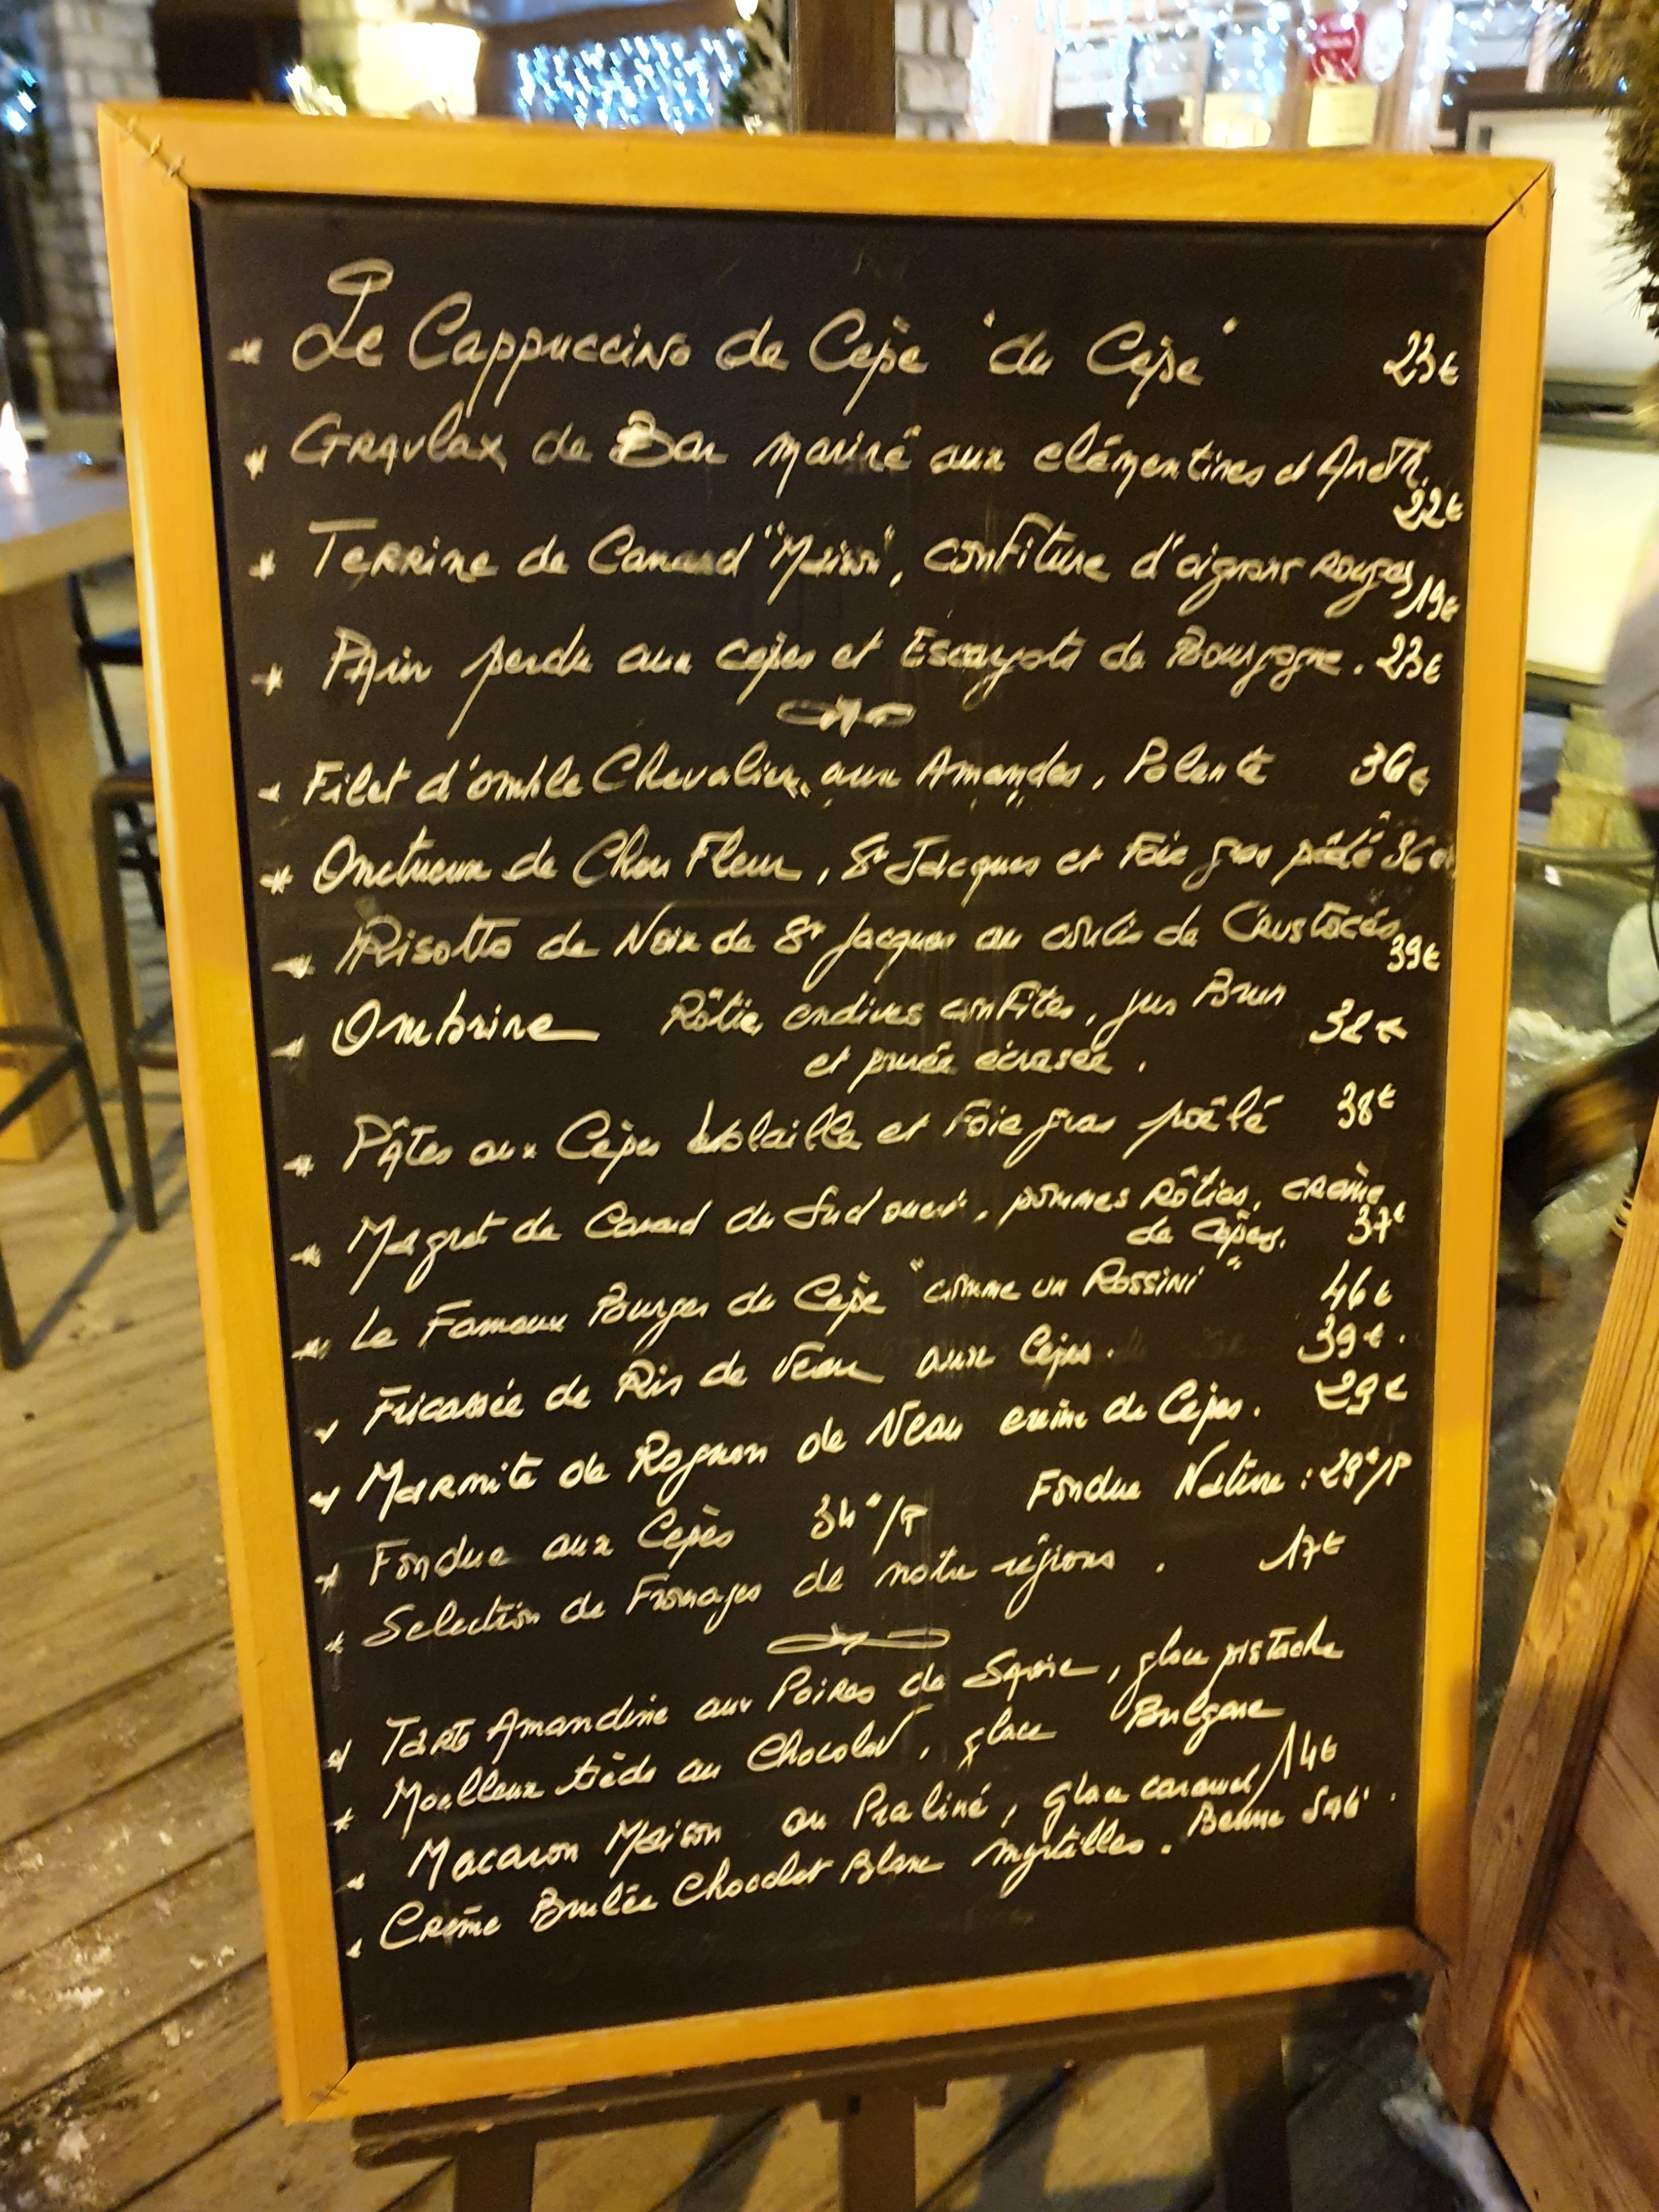 Le Cappuccino de Cèpe "du Cèpe" 23€
Gravlax de Bar mariné aux clémentines et Aneth.
22€
Terrine de Canard "Maison", confiture d'oignons rouges
19€
Pain perdu aux cèpes et Escargots de Bourgogne. 23€
Filet d'omble Chevalier, aux Amandes, Polente 36€
Onctueux de Chou Fleur, St Jacques et Foie gras pôélé 36€
Risotto de Noix de St Jacques au coulis de Crustacés
39€
Ombrine Rôtie, endives confites, jus Brun
et purée écrasée. 38€
Pâtes aux Cèpes volaille et Foie gras poêlé 38€
Magret de Canard du Sud ouest, pommes Rôties, crème
de cèpes. 37€
Le Fameux Burger du Cèpe "comme un Rossini" 46€
Fricassée de Ris de Veau aux Cèpes. 39€.
Marmite de Rognon de Veau crème de Cèpes. 29€
Fondue aux Cepès 34€/P Fondue Nature: 29€/P
Selection de Fromages de notre régions. 17€
Tarte Amandine aux Poires de Savoie, glace pistache
Moelleux tiède au Chocolat, glace Bulgare
Macaron Maison au Praliné, glace caramel 14€
Crème Brulée Chocolat Blanc myrtilles. Beurre